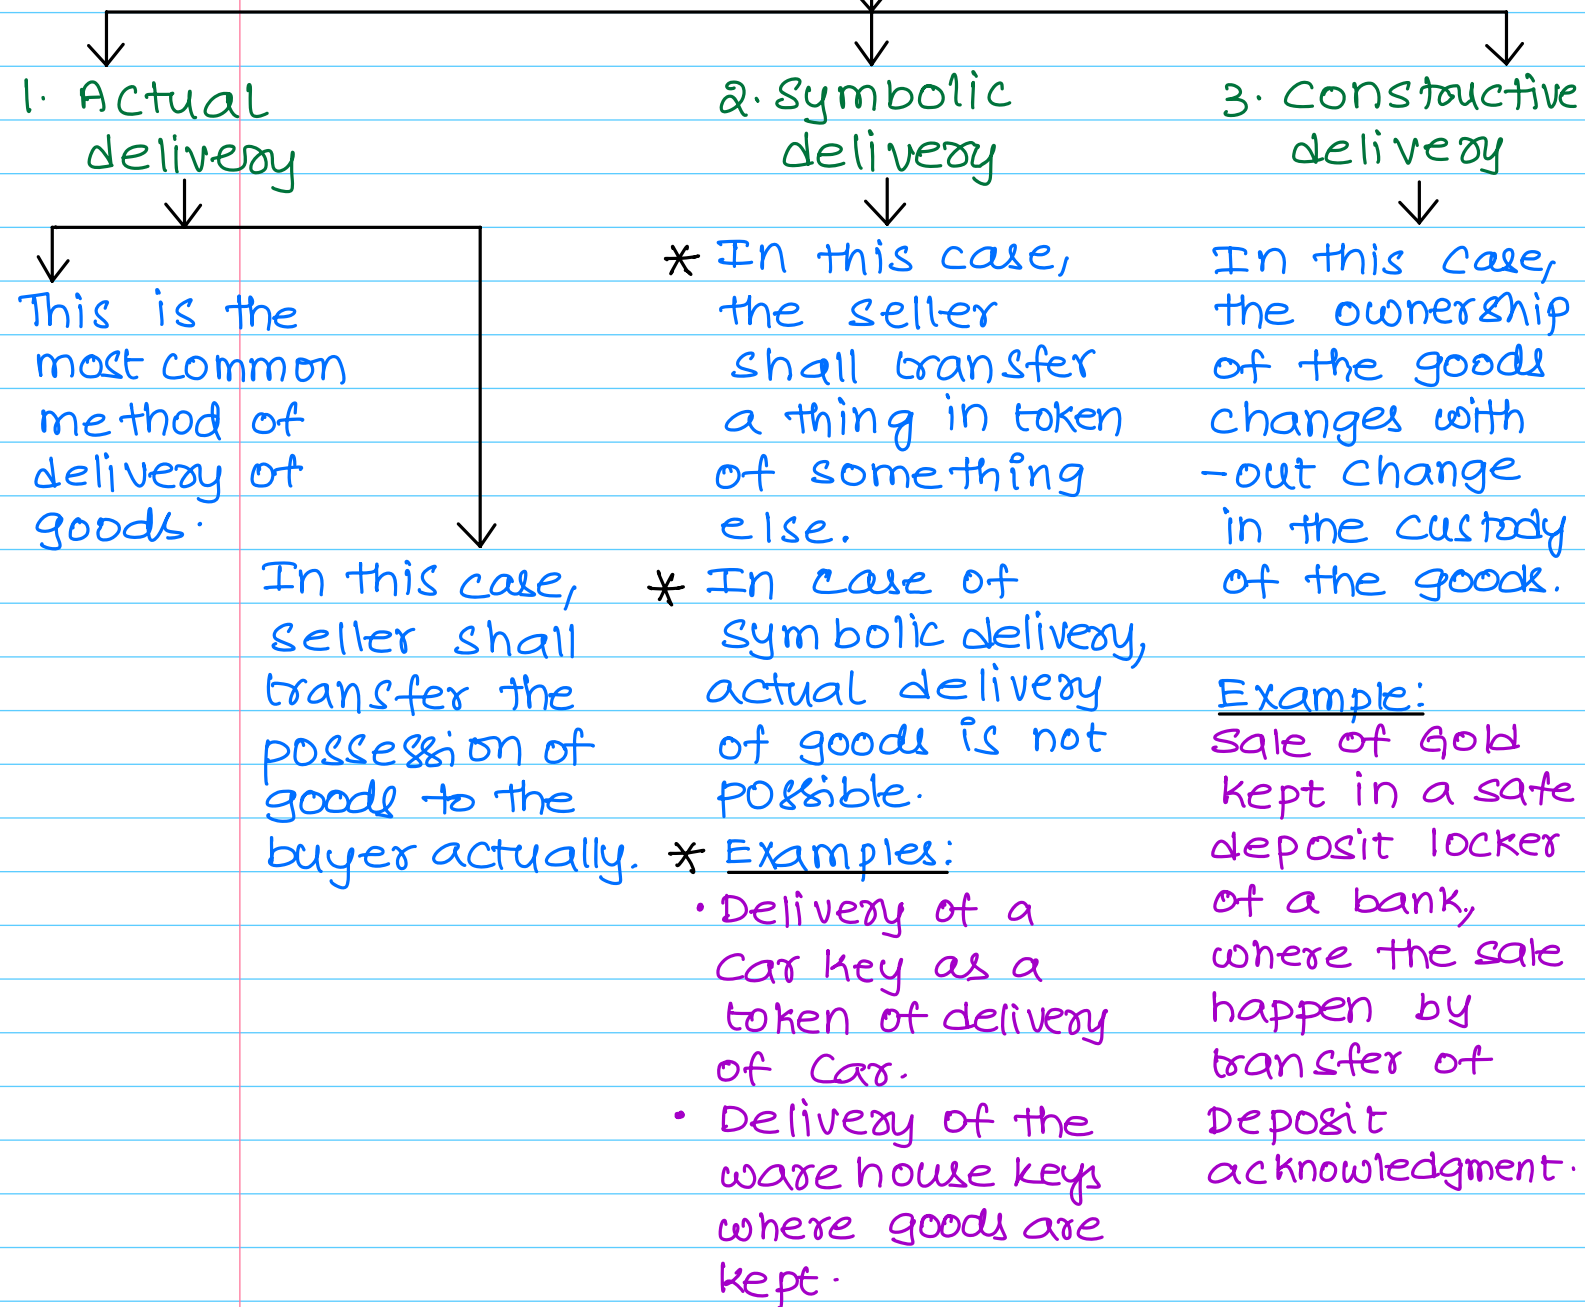 1. Actual
delivery
This is the
most common
method of
delivery of
goods.
In this case,
seller shall
transfer the
possession of
goods to the
buyer actually.
2. Symbolic
delivery
* In this case,
the seller
shall transfer
a thing in token
of something
else.
* In case of
symbolic delivery,
actual delivery
of goods is not
possible.
* Examples:
• Delivery of a
Car key as a
token of delivery
of Car.
• Delivery of the
ware house keys
where goods are
kept.
3. Constructive
delivery
In this case,
the ownership
of the goods
changes with
-out change
in the custody
of the goods.
Example:
Sale of Gold
kept in a safe
deposit locker
of a bank,
where the sale
happen by
transfer of
Deposit
acknowledgment.